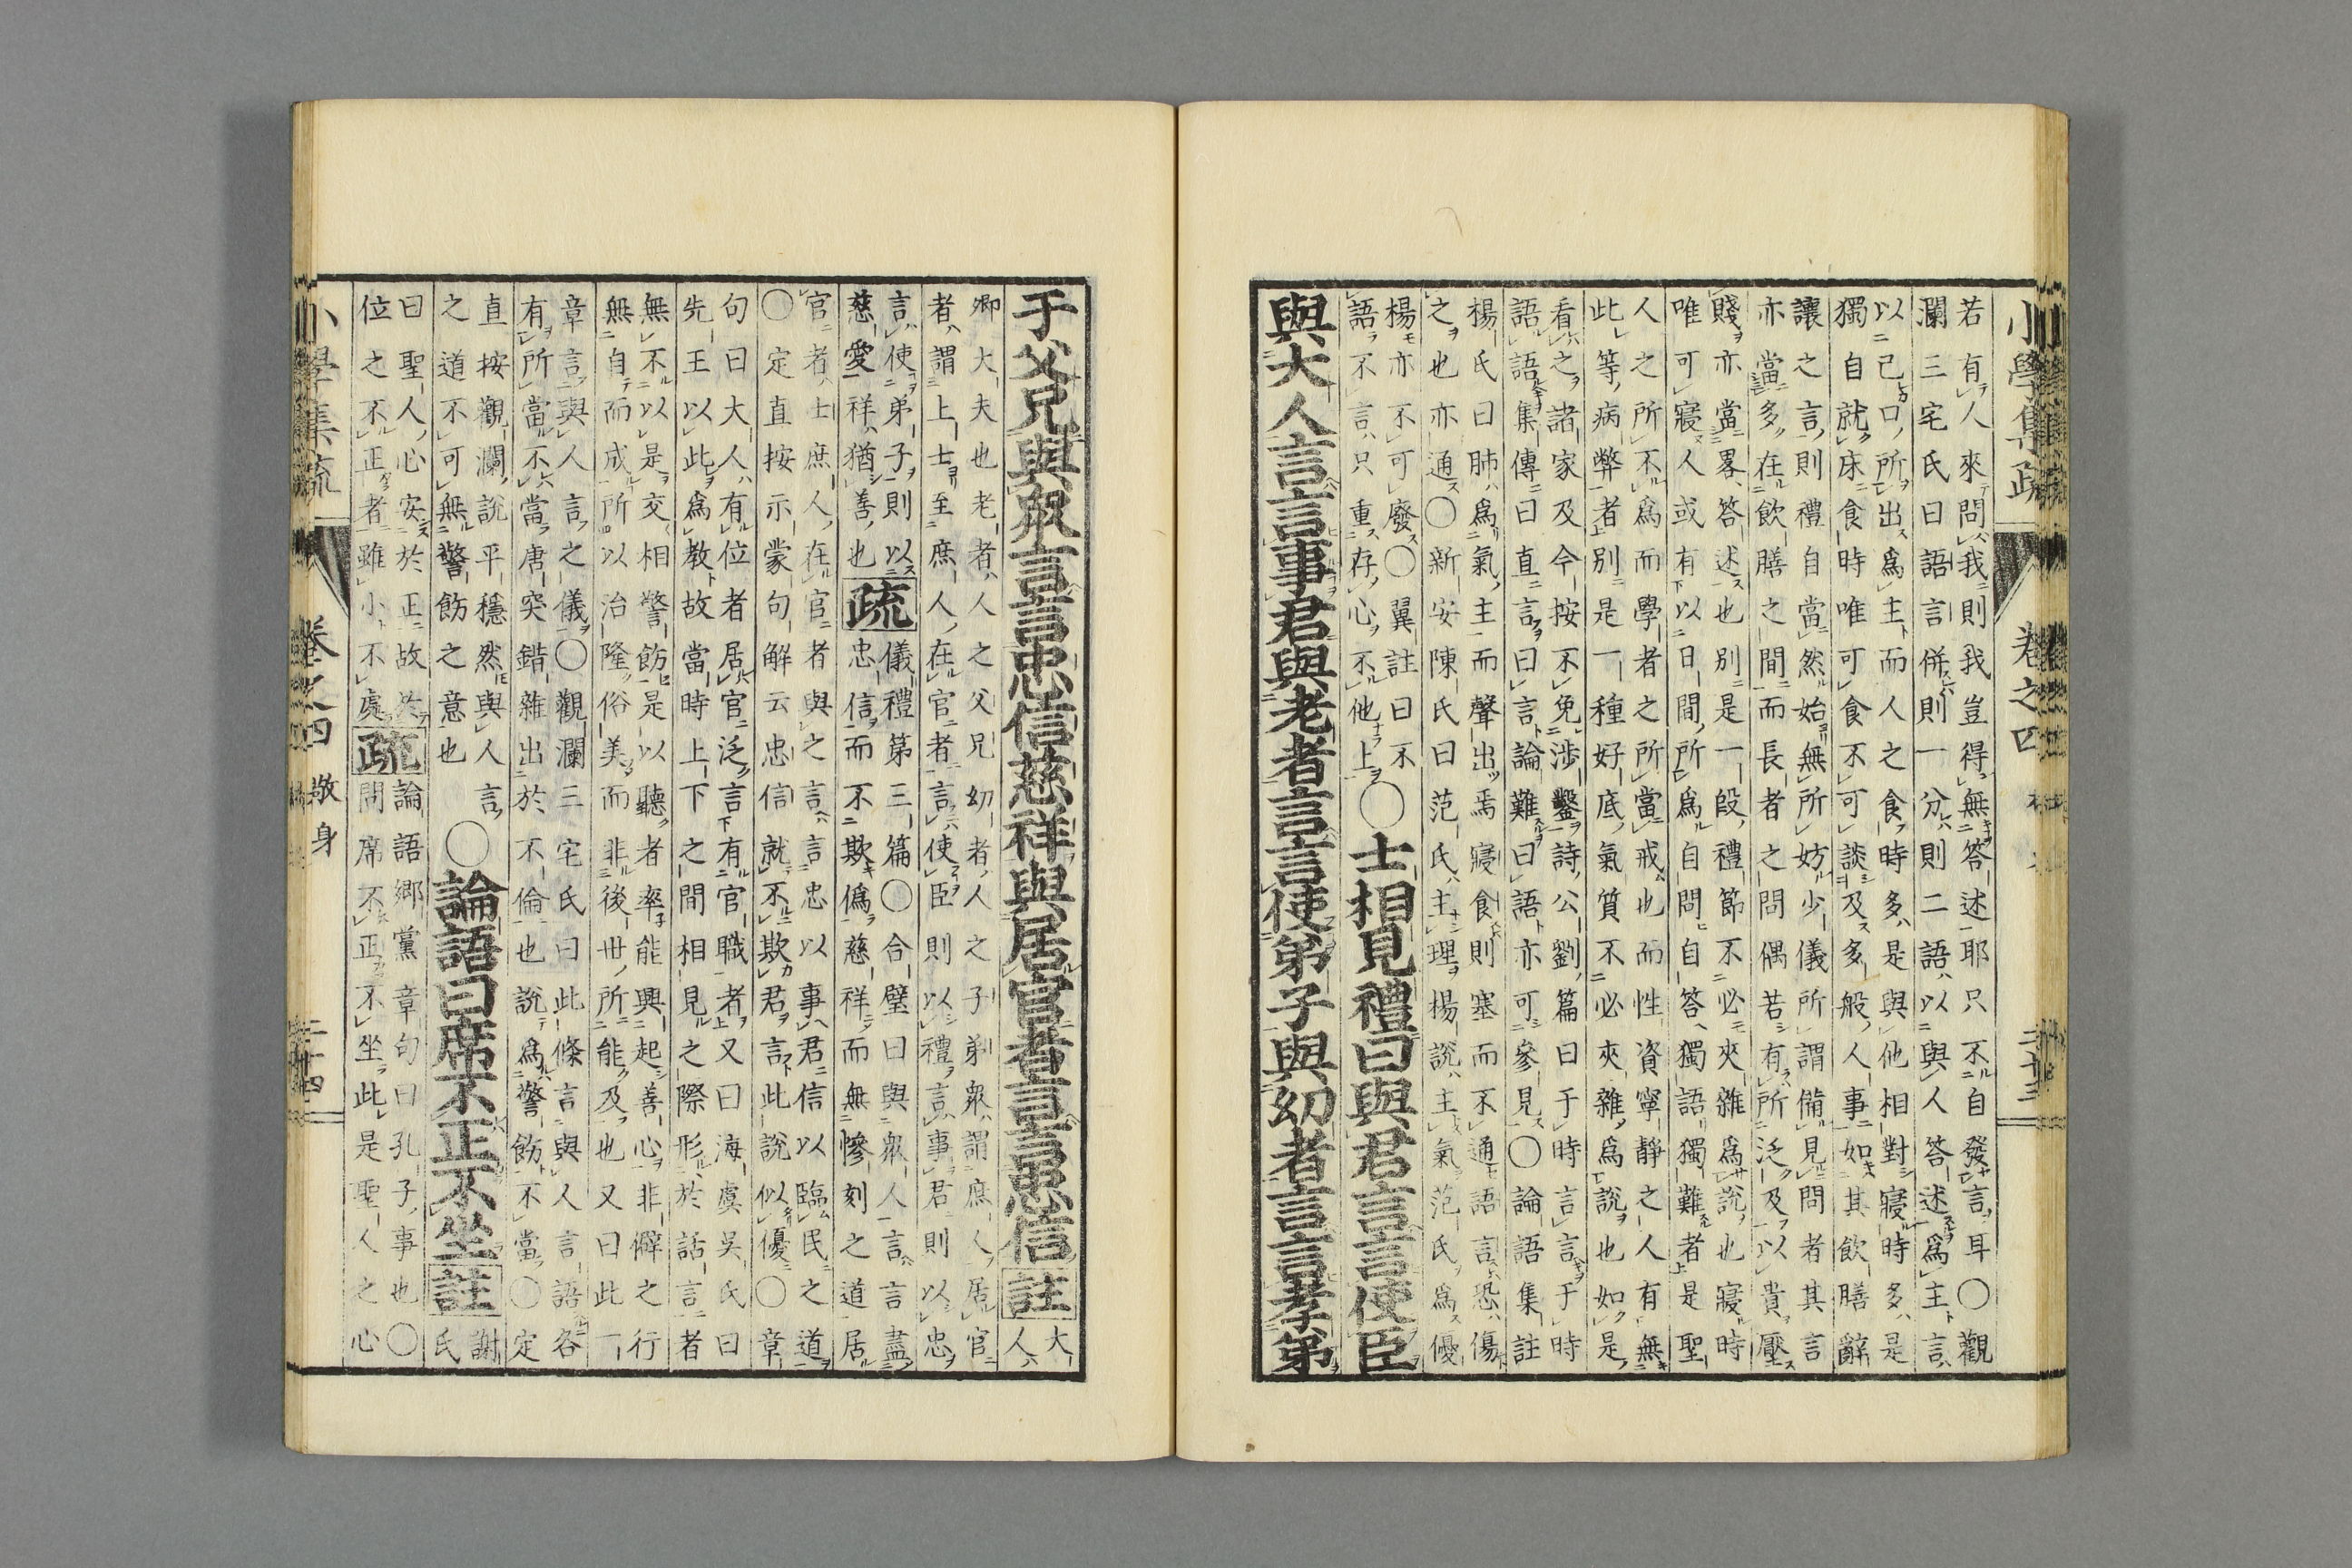 小學集疏
卷之四
二十三
若有人來問我則我豈得無答述耶只不自發言耳〇觀
瀾三宅氏曰語言併則一分則二語以與人答述爲主言
以己口所出爲主而人之食時多是與他相對寢時多是
獨自就床食時唯可食不可談及多般人事如其飲膳辭
讓之言則禮自當然始無所妨少儀所謂備見問者其言
亦當多在飲膳之間而長者之問偶若有所泛及以貴壓
賤亦當畧答述也別是一段禮節不必夾雜爲說也寢時
唯可寢人或有以日間所爲自問自答獨語獨難者是聖
人之所不爲而學者之所當戒也而性資寧靜之人有無
此等病弊者別是一種好底氣質不必夾雜爲說也如是
看之諸家及今按不免涉鑿詩公劉篇曰于時言言于時
語語集傳曰直言曰言論難曰語亦可參見〇論語集註
楊氏曰肺爲氣主而聲出焉寢食則塞而不通語言恐傷
之也亦通〇新安陳氏曰范氏主理楊說主氣范氏爲優
楊亦不可廢〇翼註曰不
語不言只重存心不他上
〇士相見禮曰與君言言使臣
與大人言言事君與老者言言使弟子與幼者言言孝弟
于父兄與衆言言忠信慈祥與居官者言言忠信
註
大
人
卿大夫也老者人之父兄幼者人之子弟衆謂庶人居官
者謂上士至庶人在官者言使臣則以禮言事君則以忠
言使弟子則以
慈愛祥猶善也
疏
儀禮第三篇〇合璧曰與衆人言言盡
忠信而不欺僞慈祥而無慘刻之道居
官者士庶人在官者與之言言忠以事君信以臨民之道
〇定直按示蒙句解云忠信就不欺君言此說似優〇章
句曰大人有位者居官泛言有官職者又曰海虞吳氏曰
先王以此爲教故當時上下之間相見之際形於話言者
無不以是交相警飭是以聽者率能興起善心非僻之行
無自而成所以治隆俗美而非後世所能及也又曰此一
章言與人言之儀〇觀瀾三宅氏曰此條言與人言語各
有所當不當唐突錯雜出於不倫也說爲警飭不當〇定
直按觀瀾說平穩然與人言
之道不可無警飭之意也
〇論語曰席不正不坐
註
謝
氏
曰聖人心安於正故於
位之不正者雖小不處
疏
論語鄉黨章句曰孔子事也〇
問席不正不坐此是聖人之心
小學集疏
卷之四
敬身
二十四